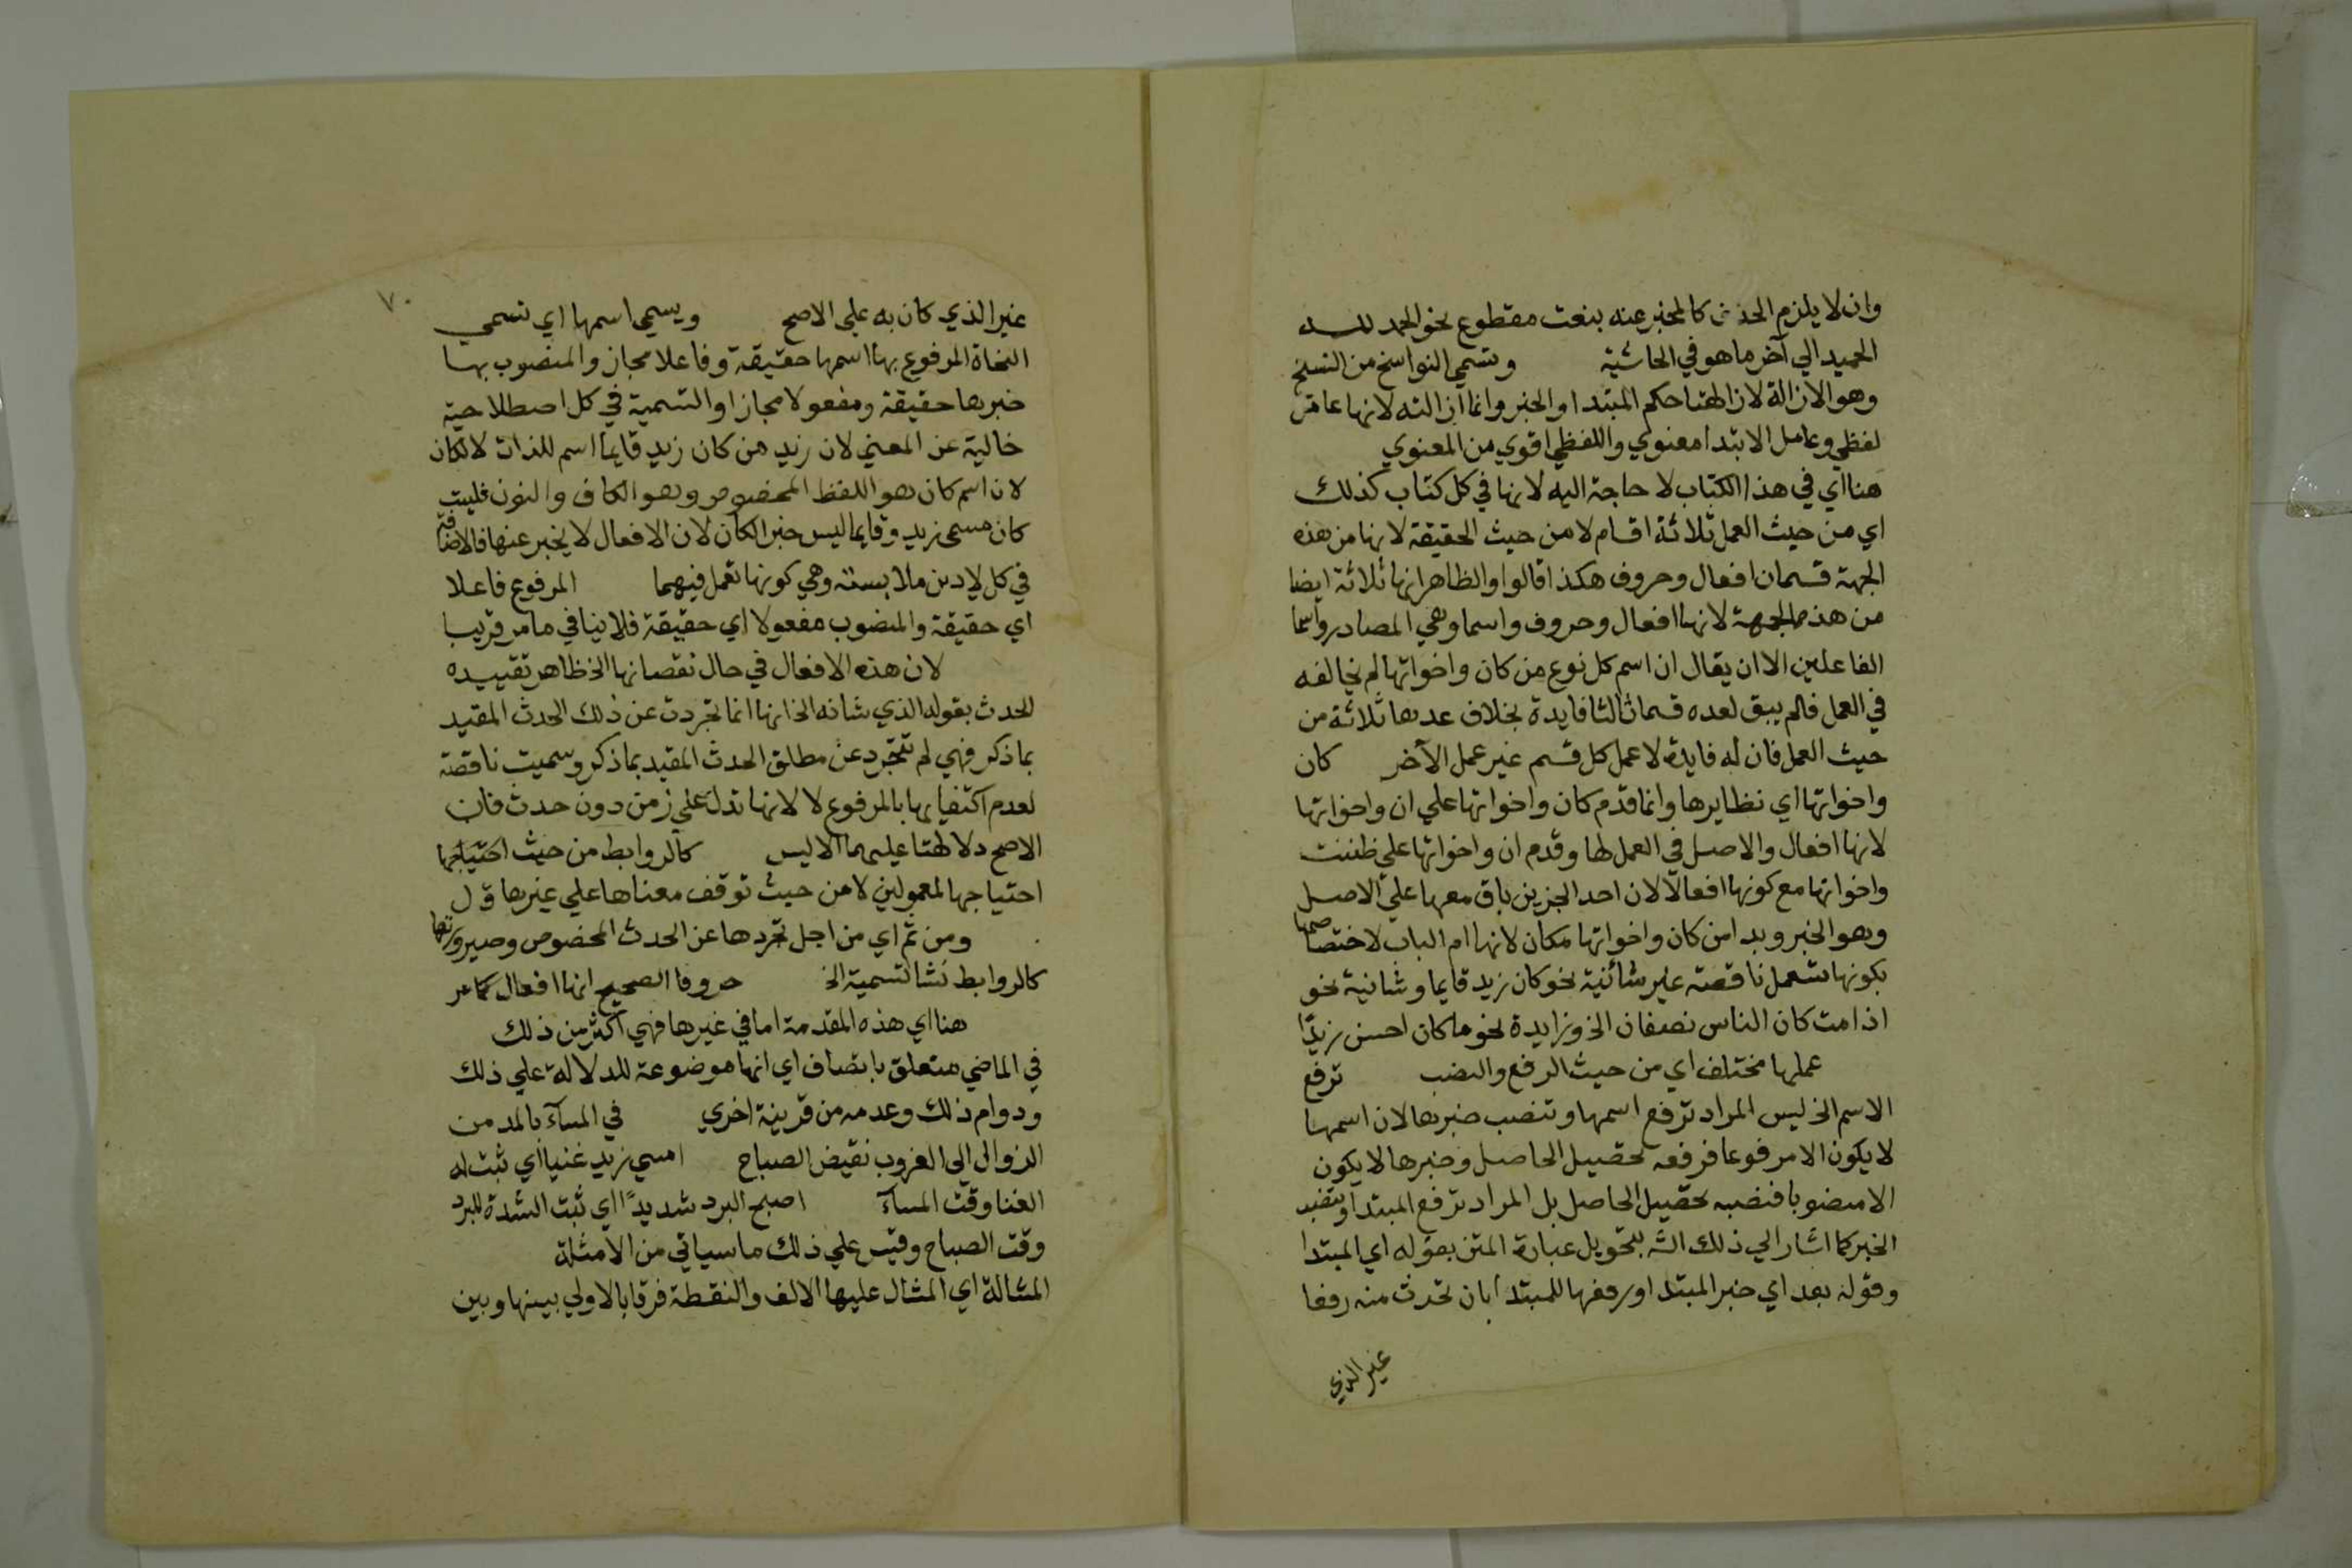 وان لا يلزم الحذف كالمخبر عنه بنعت مقطوع نحو الحمد لله
الحميد الي آخر ما هو في الحاشية وتسمي النواسخ من النسخ
وهو الازالة لازالتها حكم المبتدا والخبر وانما ازالته لانها عامل
لفظي وعامل الابتدا معنوي واللفظي اقوي من المعنوي
هنا اي في هذا الكتاب لا حاجة اليه لانها في كل كتاب كذلك
اي من حيث العمل ثلاثة اقسام لا من حيث الحقيقة لانها من هذه
الجهة قسمان افعال وحروف هكذا قالوا والظاهر انها ثلاثة ايضا
من هذه الجهة لانها افعال وحروف واسما وهي المصادر واسما
الفاعلين الا ان يقال ان اسم كل نوع من كان واخواتها لم يخالفه
في العمل فلم يبق لعده قسما ثالثا فايدة بخلاف عدها ثلاثة من
حيث العمل فان له فايدة لا عمل كل قسم غير عمل الآخر كان
واخواتها اي نظايرها وانما قدم كان واخواتها علي ان واخواتها
لانها افعال والاصل في العمل لها وقدم ان واخواتها علي ظننت
واخواتها مع كونها افعالا لان احد الجزين باق معها علي الاصل
وهو الخبر وبدا من كان واخواتها بكان لانها ام الباب لاختصاصها
بكونها تستعمل ناقصة غير شانية نحو كان زيد قايما وشانية نحو
اذا مت كان الناس نصفان الخ وزايدة نحو ما كان احسن زيدا
عملها مختلف اي من حيث الرفع والنصب ترفع
الاسم الخ ليس المراد ترفع اسمها وتنصب خبرها لان اسمها
لا يكون الا مرفوعا فرفعه تحصيل الحاصل وخبرها لا يكون
الا منصوبا فنصبه تحصيل الحاصل بل المراد ترفع المبتدا وتنصب
الخبر كما اشار الي ذلك الش بتحويل عبارة المتن بقوله اي المبتدا
وقوله بعد اي خبر المبتدا ورفعها للمبتدا بان تحدث منه رفعا
غير الذي
٧٠
غير الذي كان به علي الاصح ويسمي اسمها اي تسمي
النحاة المرفوع بها اسمها حقيقة وفاعلا مجاز والمنصوب بها
خبرها حقيقة ومفعولا مجازا والتسمية في كل اصطلاحية
خالية عن المعني لان زيد من كان زيد قايما اسم للذات لا لكان
لان اسم كان هو اللفظ المخصوص وهو الكاف والنون فليست
كان مسمي زيد وقايما ليس خبر الكان لان الافعال لا يخبر عنها فالاضافة
في كل لادني ملابسة وهي كونها تعمل فيهما المرفوع فاعلا
اي حقيقة والمنصوب مفعولا اي حقيقة فلا ينافي ما مر قريبا
لان هذه الافعال في حال نقصانها الخ ظاهر تقييده
الحدث بقوله الذي شانه الخ انها انما تجردت عن ذلك الحدث المقيد
بما ذكر فهي لم تتجرد عن مطلق الحدث المقيد بما ذكر وسميت ناقصة
لعدم اكتفايها بالمرفوع لا لانها تدل علي زمن دون حدث فان
الاصح دلالتها عليهما الا ليس كالروابط من حيث احتياجها
احتياجها لمعمولين لا من حيث توقف معناها علي غيرها ق ل
ومن ثم اي من اجل تجردها عن الحدث المخصوص وصيرورتها
كالروابط نشا تسمية الخ حروفا الصحيح انها افعال كما مر
هنا اي هذه المقدمة اما في غيرها فهي اكثر من ذلك
في الماضي متعلق باتصاف اي انها موضوعة للدلالة علي ذلك
ودوام ذلك وعدمه من قرينة اخري في المساء بالمد من
الزوال الي الغروب نقيض الصباح امسي زيد غنيا اي ثبت له
الغنا وقت المساء اصبح البرد شديدًا اي ثبت الشدة للبرد
وقت الصباح وقيس علي ذلك ما سياتي من الامثلة
المشالة اي المشال عليها الالف والنقطة فرقا بالاولي بينها وبين